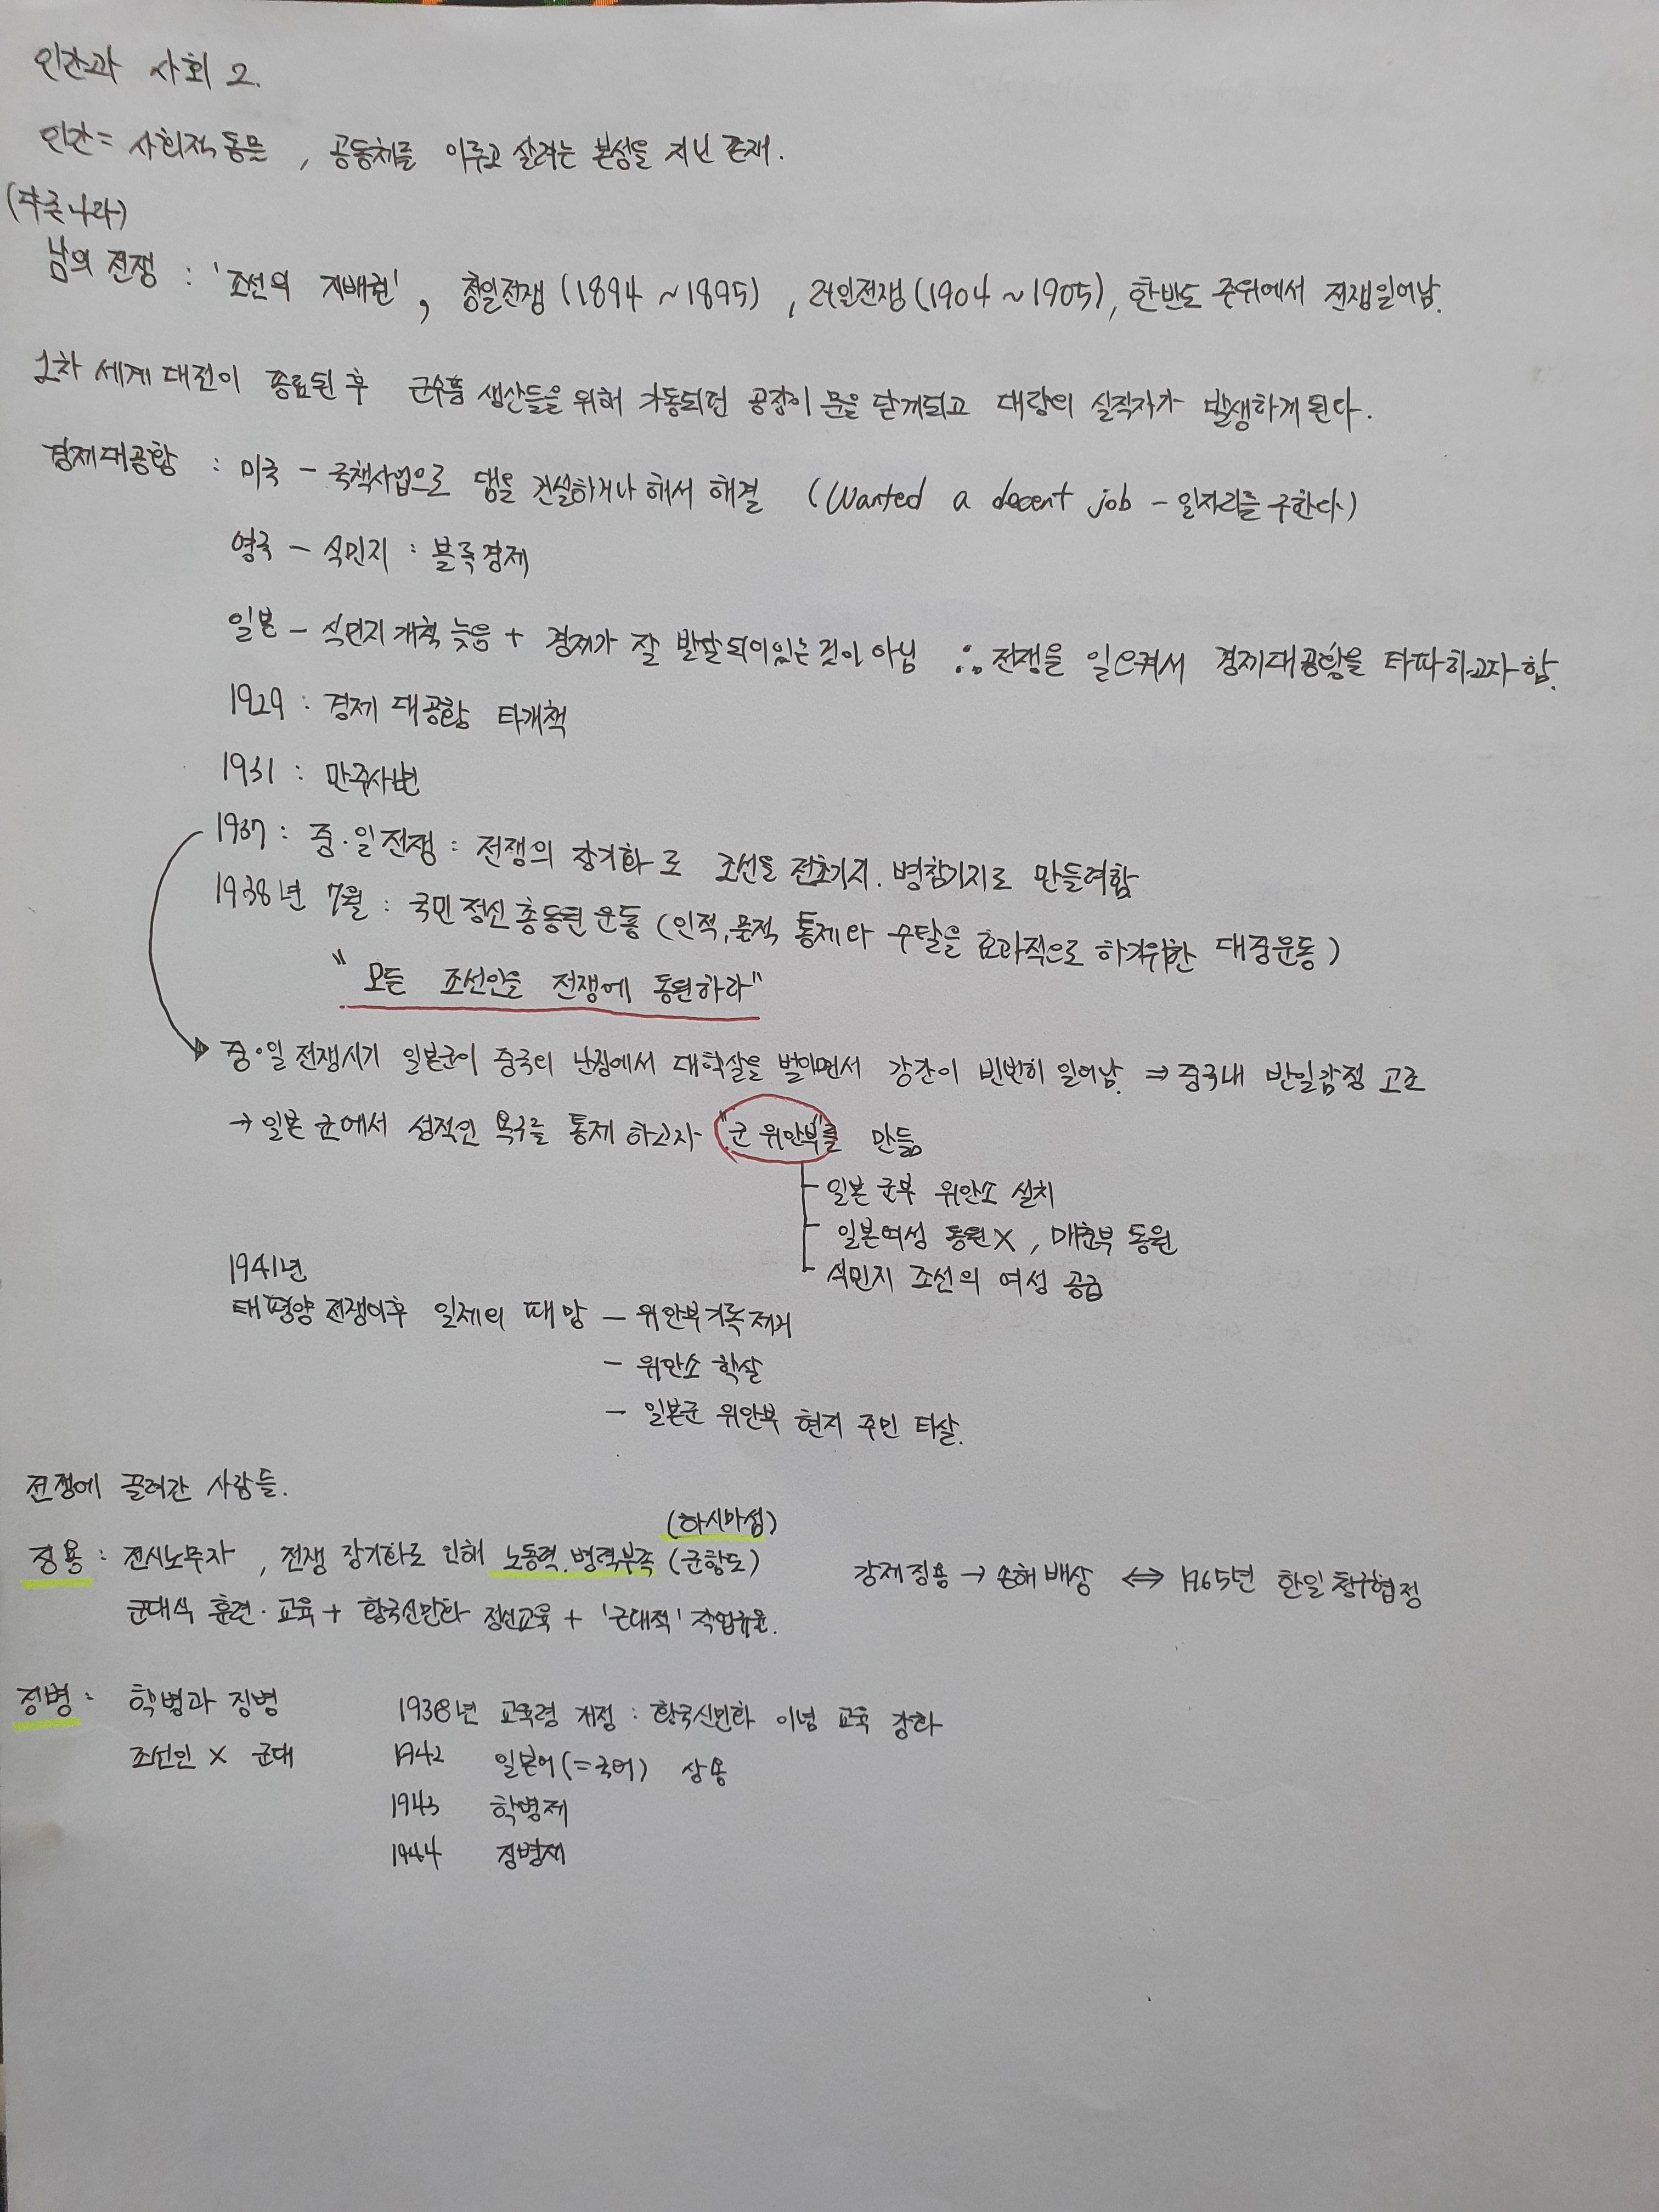 인간과 사회 2.
인간 = 사회적 동물 , 공동체를 이루고 살려는 본성을 지닌 존재.
(다른나라)
남의 전쟁 : '조선의 지배권' , 청일전쟁 (1894 ~ 1895) , 러일전쟁 (1904 ~ 1905), 한반도 주위에서 전쟁일어남.
1차 세계 대전이 종료된 후 군수품 생산들을 위해 가동되던 공장이 문을 닫게되고 대량의 실직자가 발생하게 된다.
경제대공황 : 미국 - 국책사업으로 댐을 건설하거나 해서 해결 (Wanted a decent job - 일자리를 구한다)
영국 - 식민지 : 블록경제
일본 - 식민지 개척 늦음 + 경제가 잘 발달되어있는 것이 아님 ∴ 전쟁을 일으켜서 경제대공황을 타파하고자 함.
1929 : 경제 대공황 타개책
1931 : 만주사변
1937 : 중·일 전쟁 : 전쟁의 장기화로 조선을 전초기지. 병참기지로 만들려함
1938년 7월 : 국민 정신 총동원 운동 (인적, 물적 통제와 수탈을 효과적으로 하기위한 대중운동)
"모든 조선인을 전쟁에 동원하라"
중·일 전쟁시기 일본군이 중국의 난징에서 대학살을 벌이면서 강간이 빈번히 일어남. ⇒ 중국내 반일감정 고조
→ 일본 군에서 성적인 욕구를 통제 하고자 "군 위안부"를 만듦
일본 군부 위안소 설치
일본여성 동원 X , 매춘부 동원
식민지 조선의 여성 공급
1941년
태평양 전쟁이후 일제의 패망 - 위안부 기록 제거
- 위안소 학살
- 일본군 위안부 현지 주민 타살.
전쟁에 끌려간 사람들.
(하시마섬)
징용 : 전시노무자 , 전쟁 장기화로 인해 노동력. 병력부족 (군함도)
강제징용 → 손해 배상 ⇔ 1965년 한일 청구협정
군대식 훈련·교육 + 황국신민화 정신교육 + '군대적' 작업규율.
징병 : 학병과 징병
조선인 X 군대
1938년 교육령 개정 : 황국신민화 이념 교육 강화
1942 일본어(=국어) 상용
1943 학병제
1944 징병제